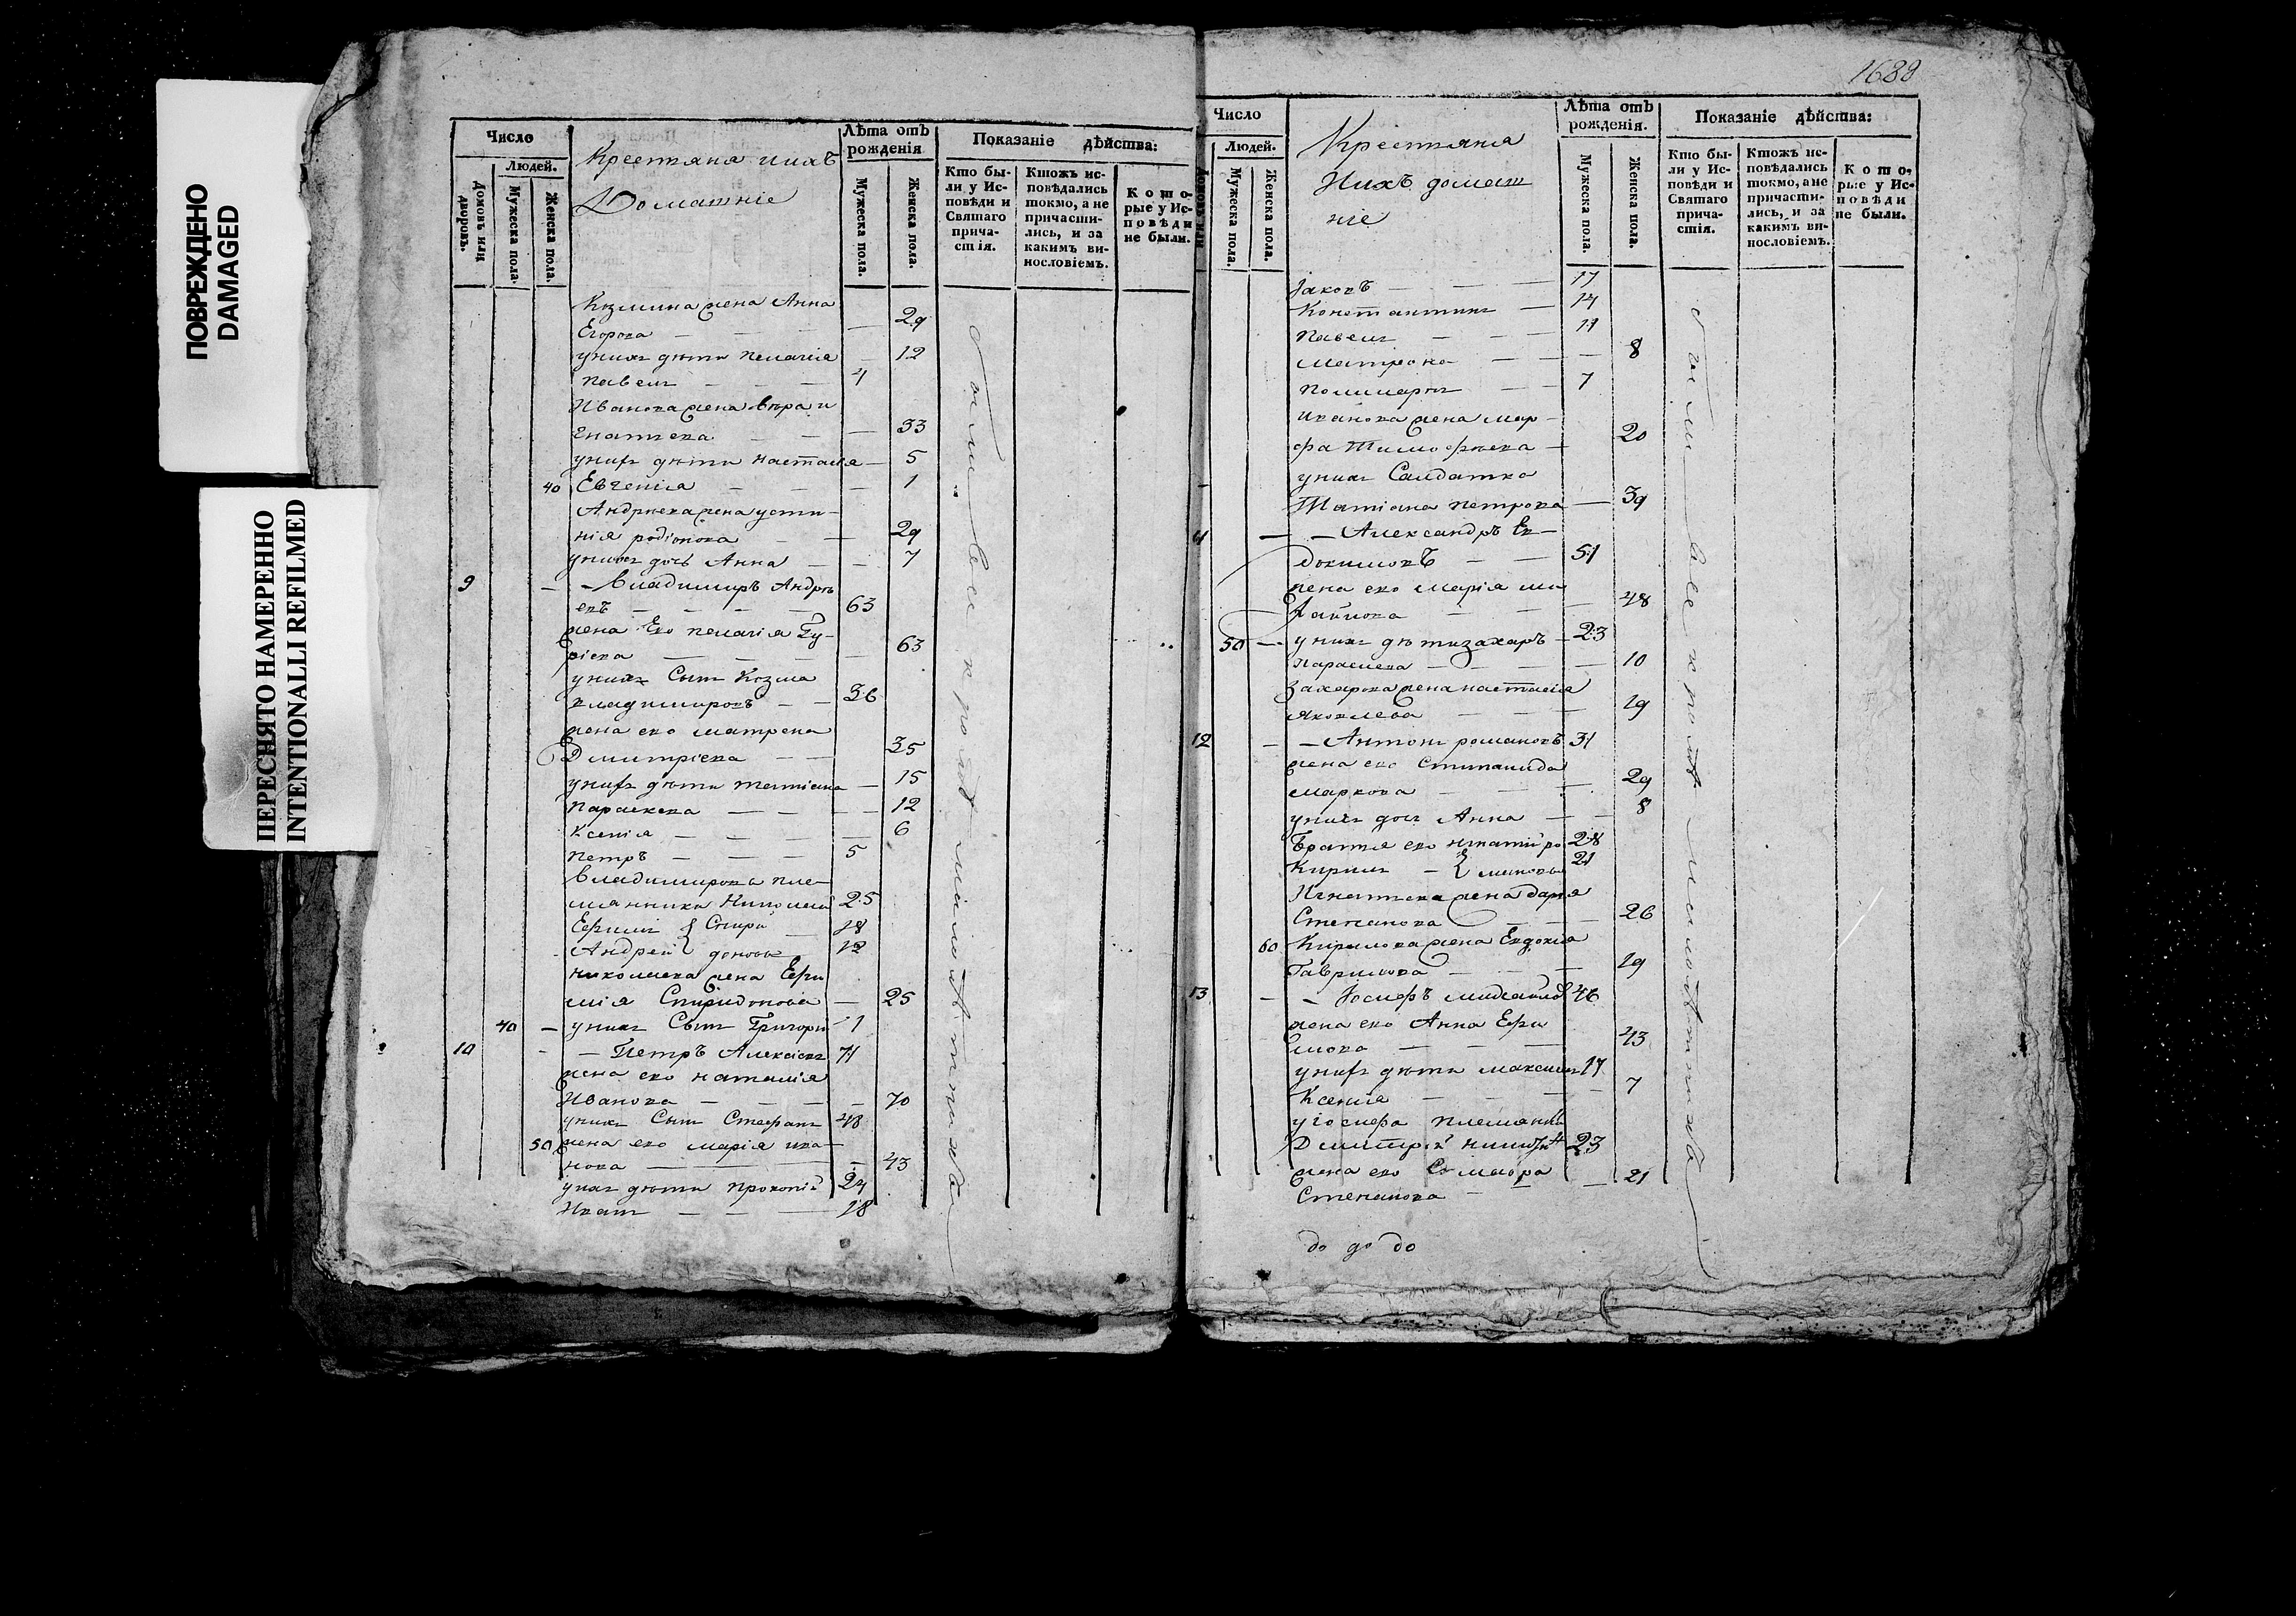 ПОВРЕЖДЕНО
DAMAGED
ПЕРЕСНЯТО НАМЕРЕННО
INTENTIONALLI REFILMED
Число
Людей.
Домовъ или дворовъ.
Мужеска пола.
Женска пола.
Крестяна ихъ
Домашніе
Лѣта отъ рожденія
Мужеска пола.
Женска пола.
Показаніе дѣйства:
Кто бы-
ли у Ис-
повѣди и
Святаго
прича-
стія.
Ктожъ ис-
повѣдались
токмо, а не
причасти-
лись, и за
какимъ ви-
нословіемъ.
Кото-
рые у Ис-
повѣди
не были.
Козмина жена Анна
Егорова — 29
униxъ дѣти Пелагія — 12
Павелъ — 4
Иванова жена Вѣра и
гнатьева — 33
униxъ дѣти Настасья — 5
40 Евгенія — 1
Андрѣева жена усти-
нія родіонова — 29
униxъ дочь Анна — 7
9 — Владимиръ Андрѣ
евъ — 63
жена Ево пелагія Гу-
ріева — 63
униxъ Сынъ Козма
владимировъ — 36
жена ево матрена
Дмитріева — 35
униxъ дѣти татіана — 15
Параскева — 12
Ксенія — 6
петръ — 5
владимирова пле-
мянники Николай 25
Ефимъ } Спири 18
Андрей } доновы 12
николаева жена Ефи
мія Спиридонова — 25
40 — униxъ Сынъ Григорій 1
10 — Петръ Алексіевъ 71
жена ево наталія
Иванова — 70
униxъ Сынъ Стефанъ 48
50 жена ево марія ива-
нова — 43
униxъ дѣти прокопій 24
Иванъ — 18
были все кромѣ малолѣтныхъ
1688
Число
Людей.
Домовъ или
Мужеска пола.
Женска пола.
Крестяна
Иихъ домаш
ніе
Лѣта отъ рожденія.
Мужеска пола.
Женска пола.
Показаніе дѣйства:
Кто бы-
ли у Ис-
повѣди и
Святаго
прича-
стія.
Ктожъ ис-
повѣдались
токмо, а не
причасти-
лись, и за
какимъ ви-
нословіемъ.
Кото-
рые у Ис-
повѣди
не были.
Іаковъ — 17
Константинъ — 14
Павелъ — 11
матрона — 8
7
иванова жена мар-
фа Тимофѣева — 20
униxъ Салдатка
Татіана петрова — 39
11 — Александръ Ев-
докимовъ — 51
жена ево марія ми
хайлова — 48
50 — униxъ дѣти захаръ — 23
параскева — 10
Захарова жена настасія
яковлева — 19
12 — Антонъ романовъ 31
жена ево Степанида
маркова — 29
униxъ дочь Анна — 8
Братья ево игнатій ро 28
Кирилъ — } мановы 21
Игнатьева жена дарья
Степанова — 26
60 Кирилова жена Евдокія
Гаврилова — 19
13 — Іосифъ михайловъ 46
жена ево Анна Ефи
мова — 43
униxъ дѣти максимъ 17
Ксенія — 7
у Іосифа племянникъ
Дмитрій 23
жена ево мавра
Степанова — 21
были все кромѣ малолѣтныхъ
до до до